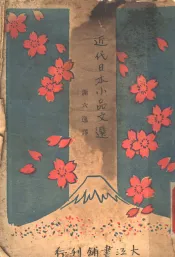 近代日本小品文選
謝六逸譯
大江書鋪刊行